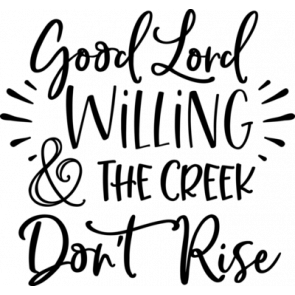 Good Lord
WiLLiNG
& THE CREEK
Don't Rise